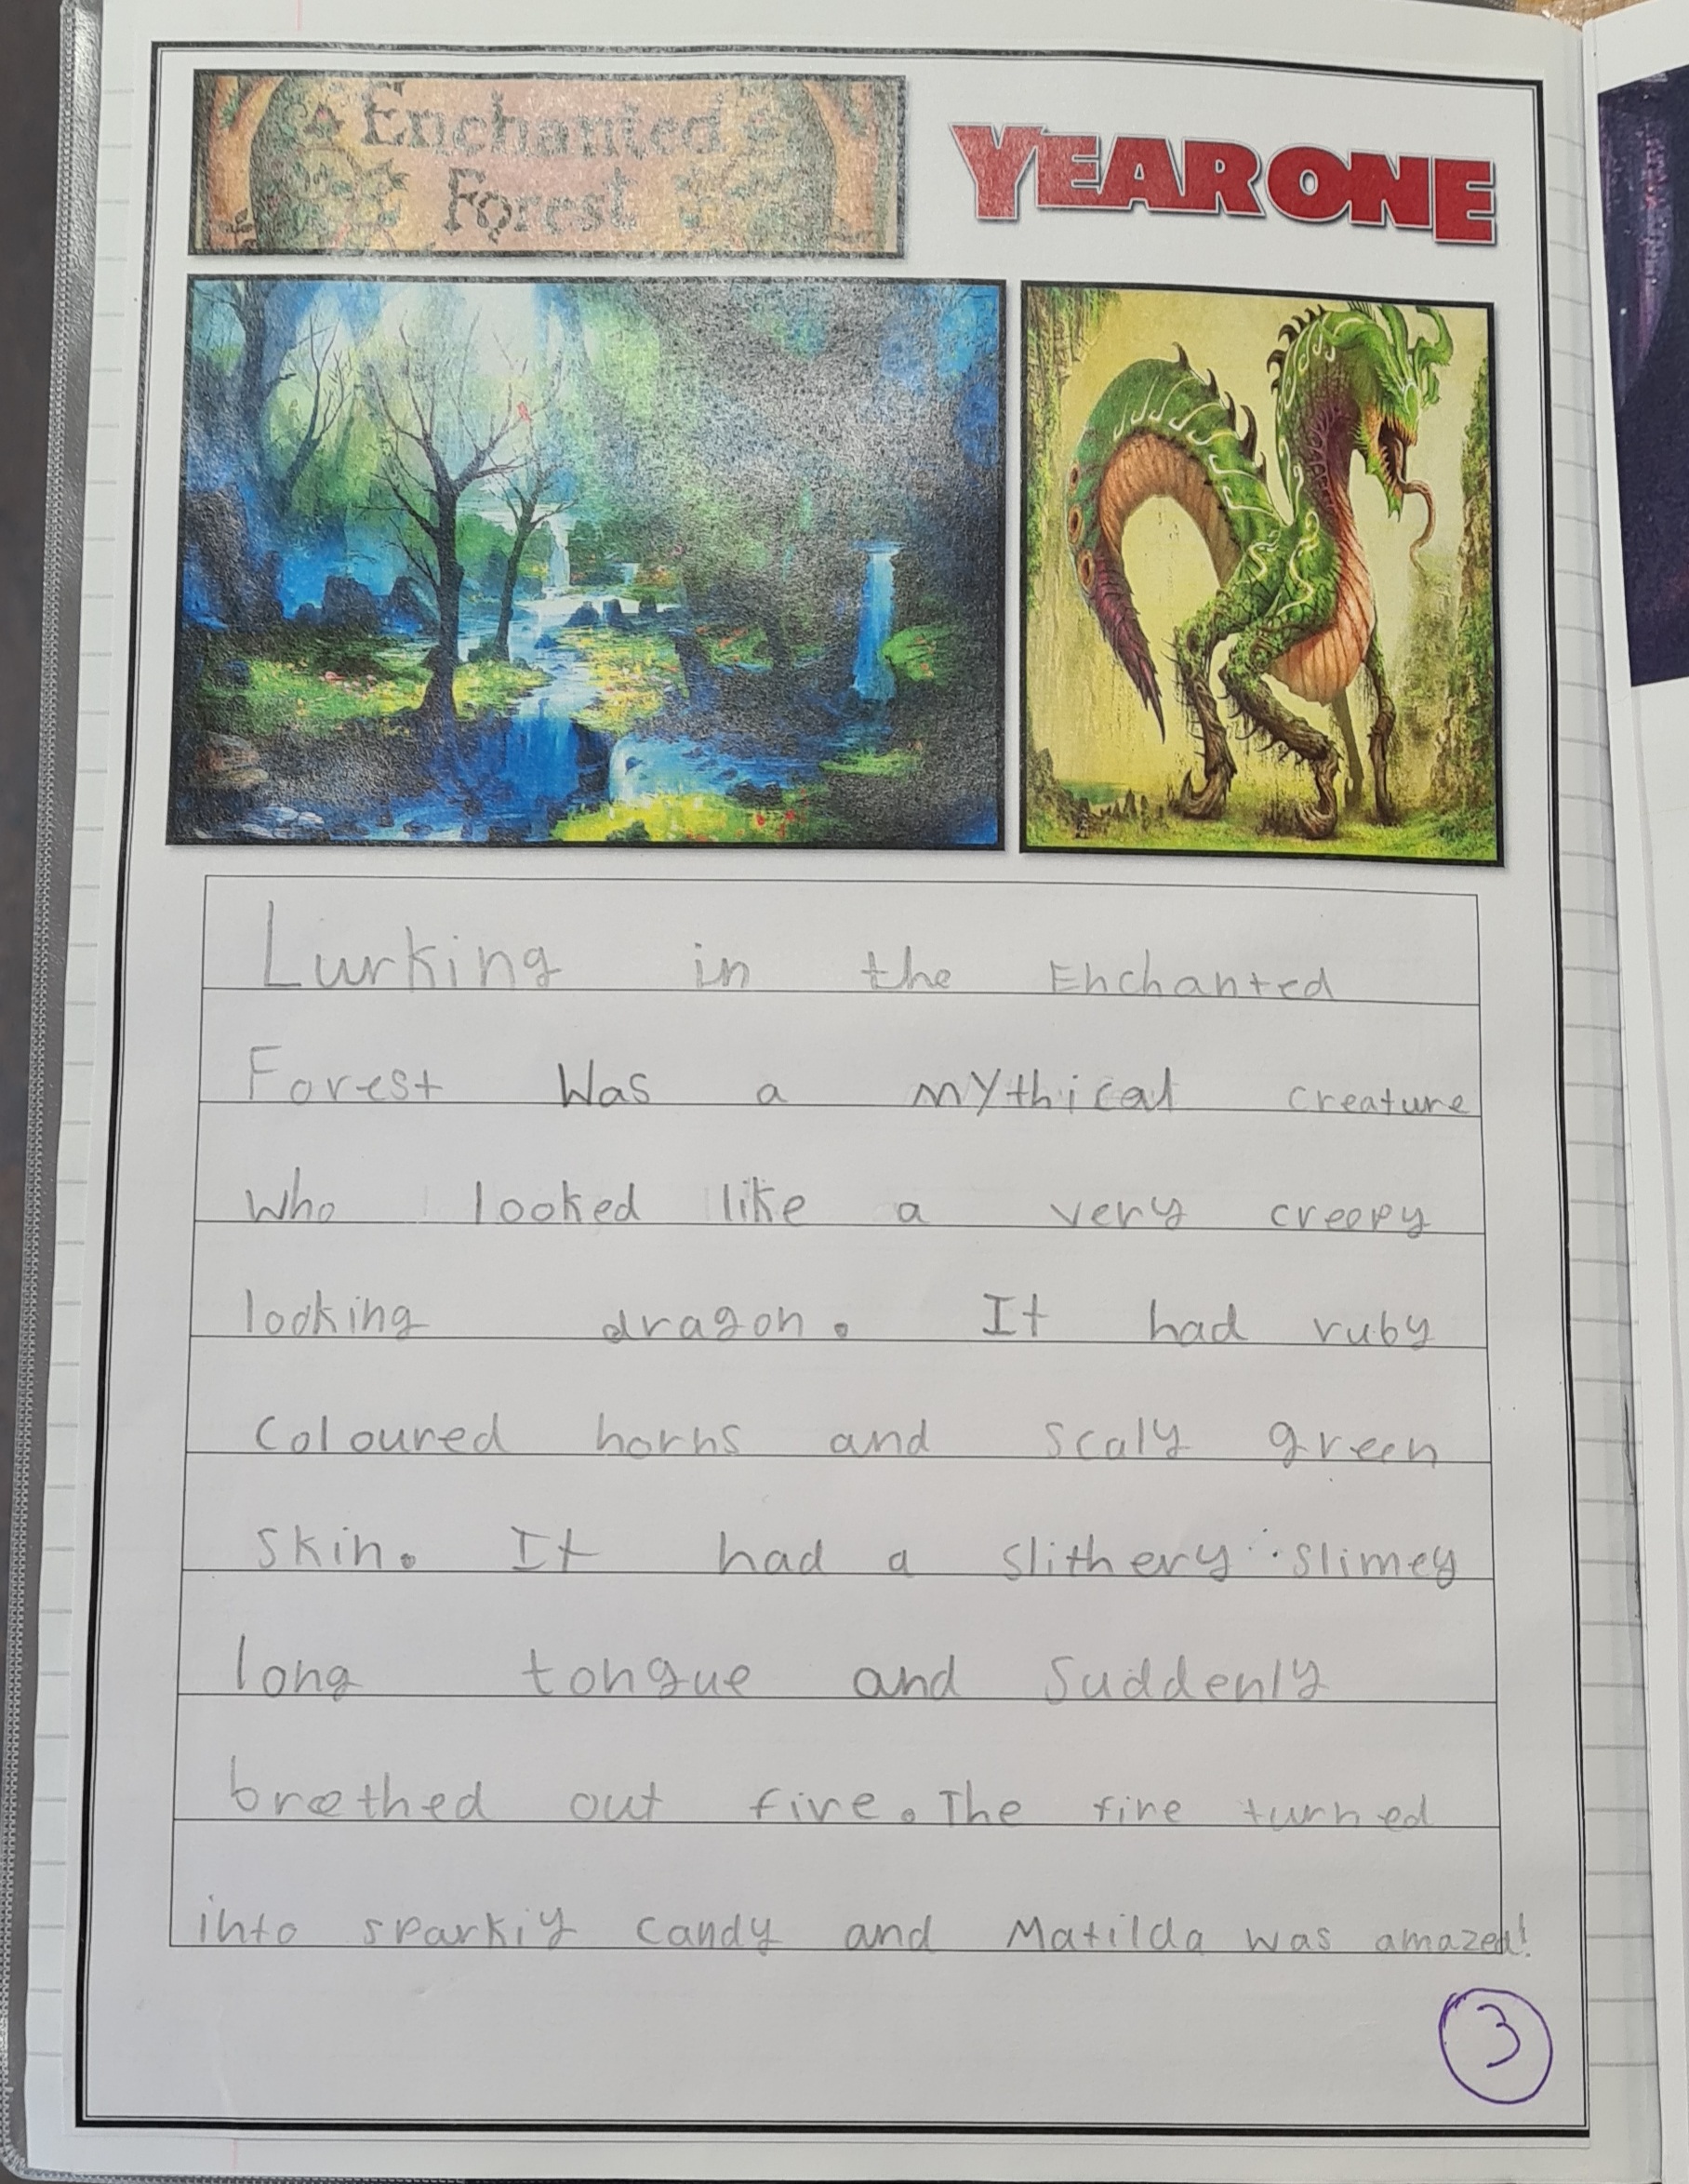 Enchanted
Forest
YEAR ONE
Lurking in the Enchanted
Forest Was a mythical creature
who looked like a very creepy
looking dragon. It had ruby
Coloured horns and scaly green
skin. It had a slithery slimey
long tongue and Suddenly
breathed out fire. The fire turned
into sparkiy candy and Matilda was amazed!
3